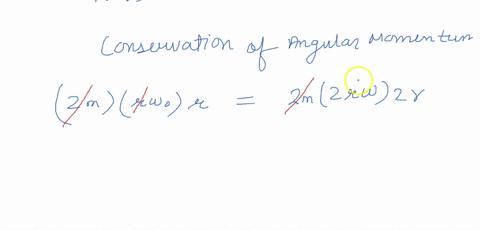 Conservation of Angular Momentum
(2m)(rω₀) r = 2m(2rω) 2r